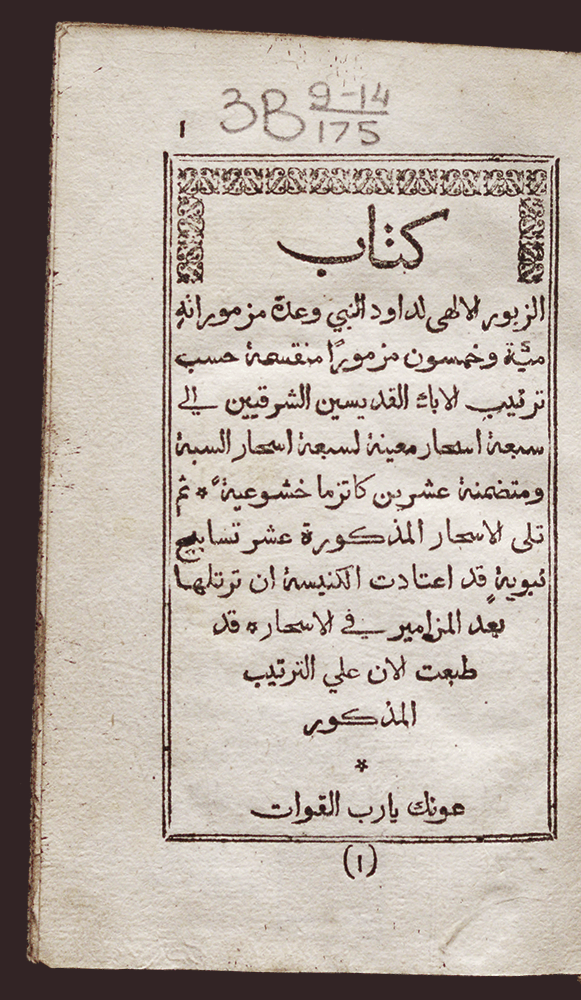 3B 9-14
175
١
كتاب
الزبور الالهي لداود النبي وعدة مزموراته
مئية وخمسون مزمورًا منقسمة حسب
ترتيب الاباء القديسين الشرقيين الي
سبعة اسحار معينة لسبعة اسحار السبة
ومتضمنة عشرين كاتزما خشوعية * ثم
تلي الاسحار المذكورة عشر تسابيح
نبوية قد اعتادت الكنيسة ان ترتلها
بعد المزامير في الاسحار * قد
طبعت الان علي الترتيب
المذكور
*
عونك يارب القوات
(١)